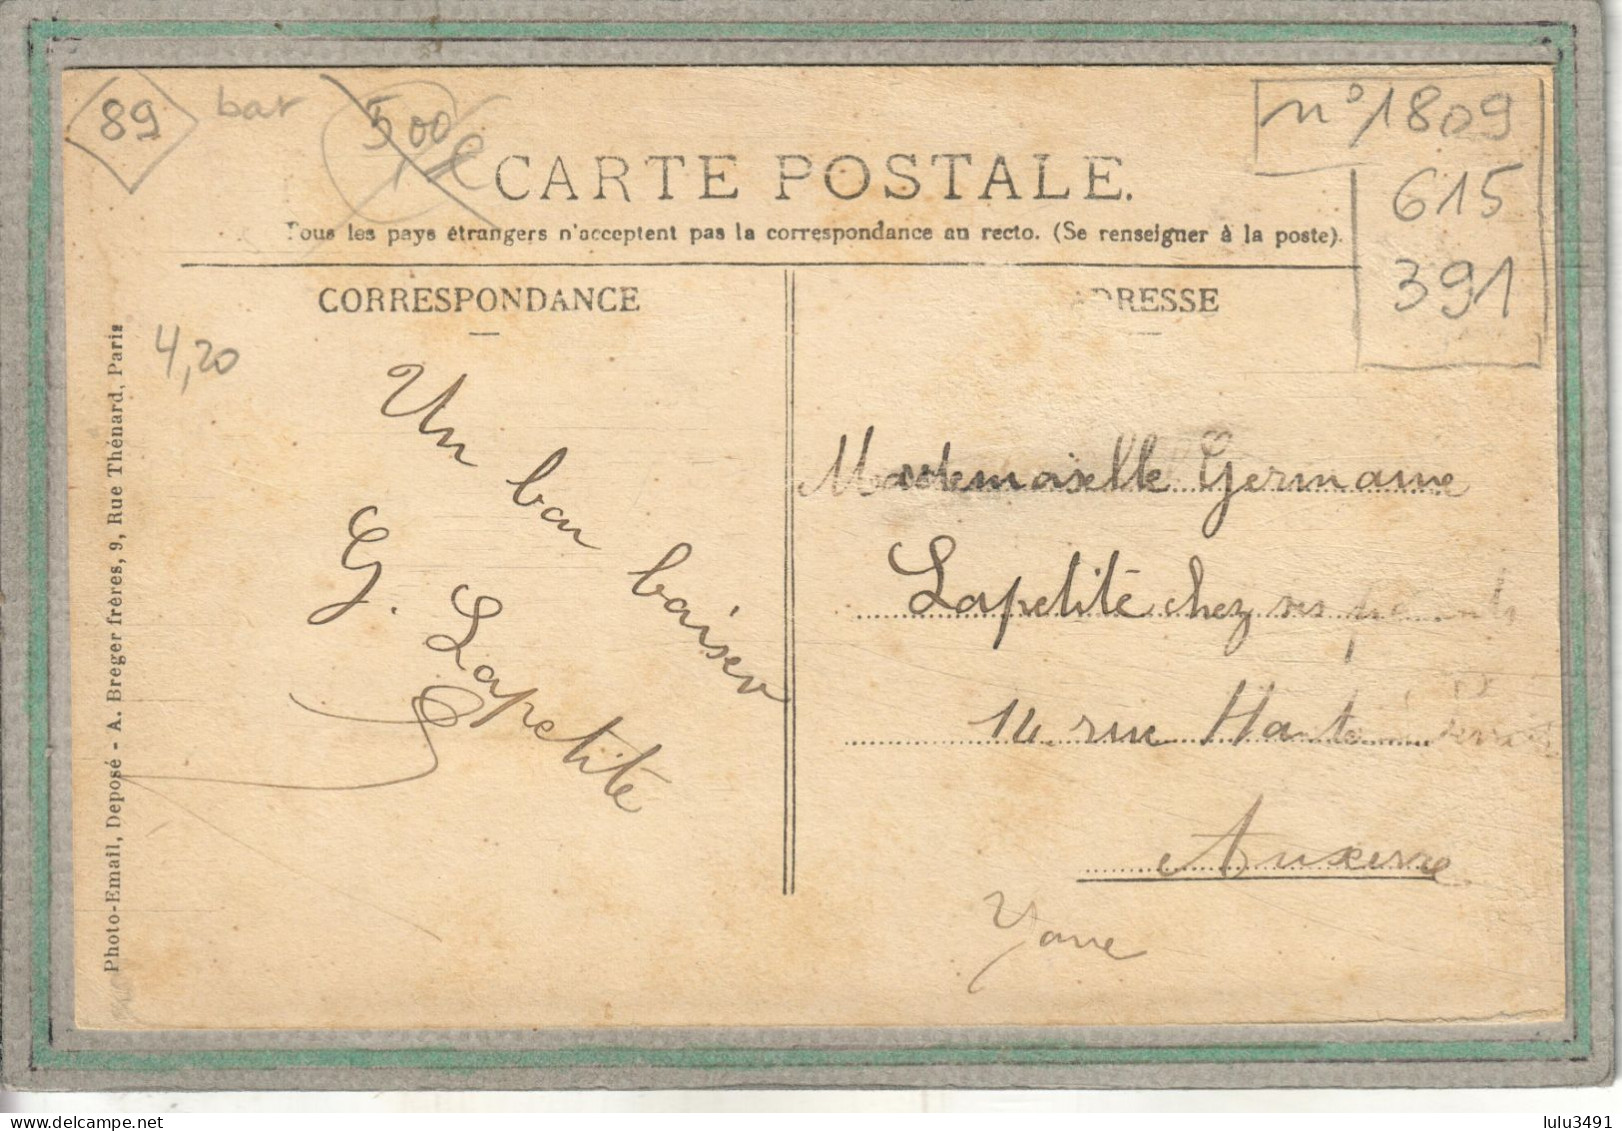 89
bar
5,00 €
n° 1809
615
391
CARTE POSTALE.
Tous les pays étrangers n'acceptent pas la correspondance au recto. (Se renseigner à la poste).
CORRESPONDANCE
4,20
Un bon baiser
G. Lapetite
Photo-Email, Deposé - A. Breger frères, 9, Rue Thénard, Paris
ADRESSE
Mademoiselle Germaine
Lapetite chez ses parents
14 rue Haute
Auxerre
Yonne
lulu3491